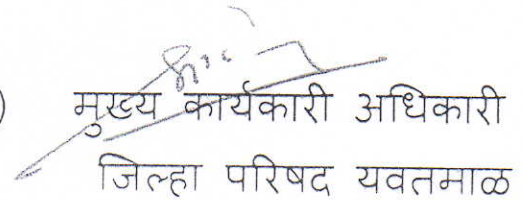 )
मुख्य कार्यकारी अधिकारी
जिल्हा परिषद यवतमाळ